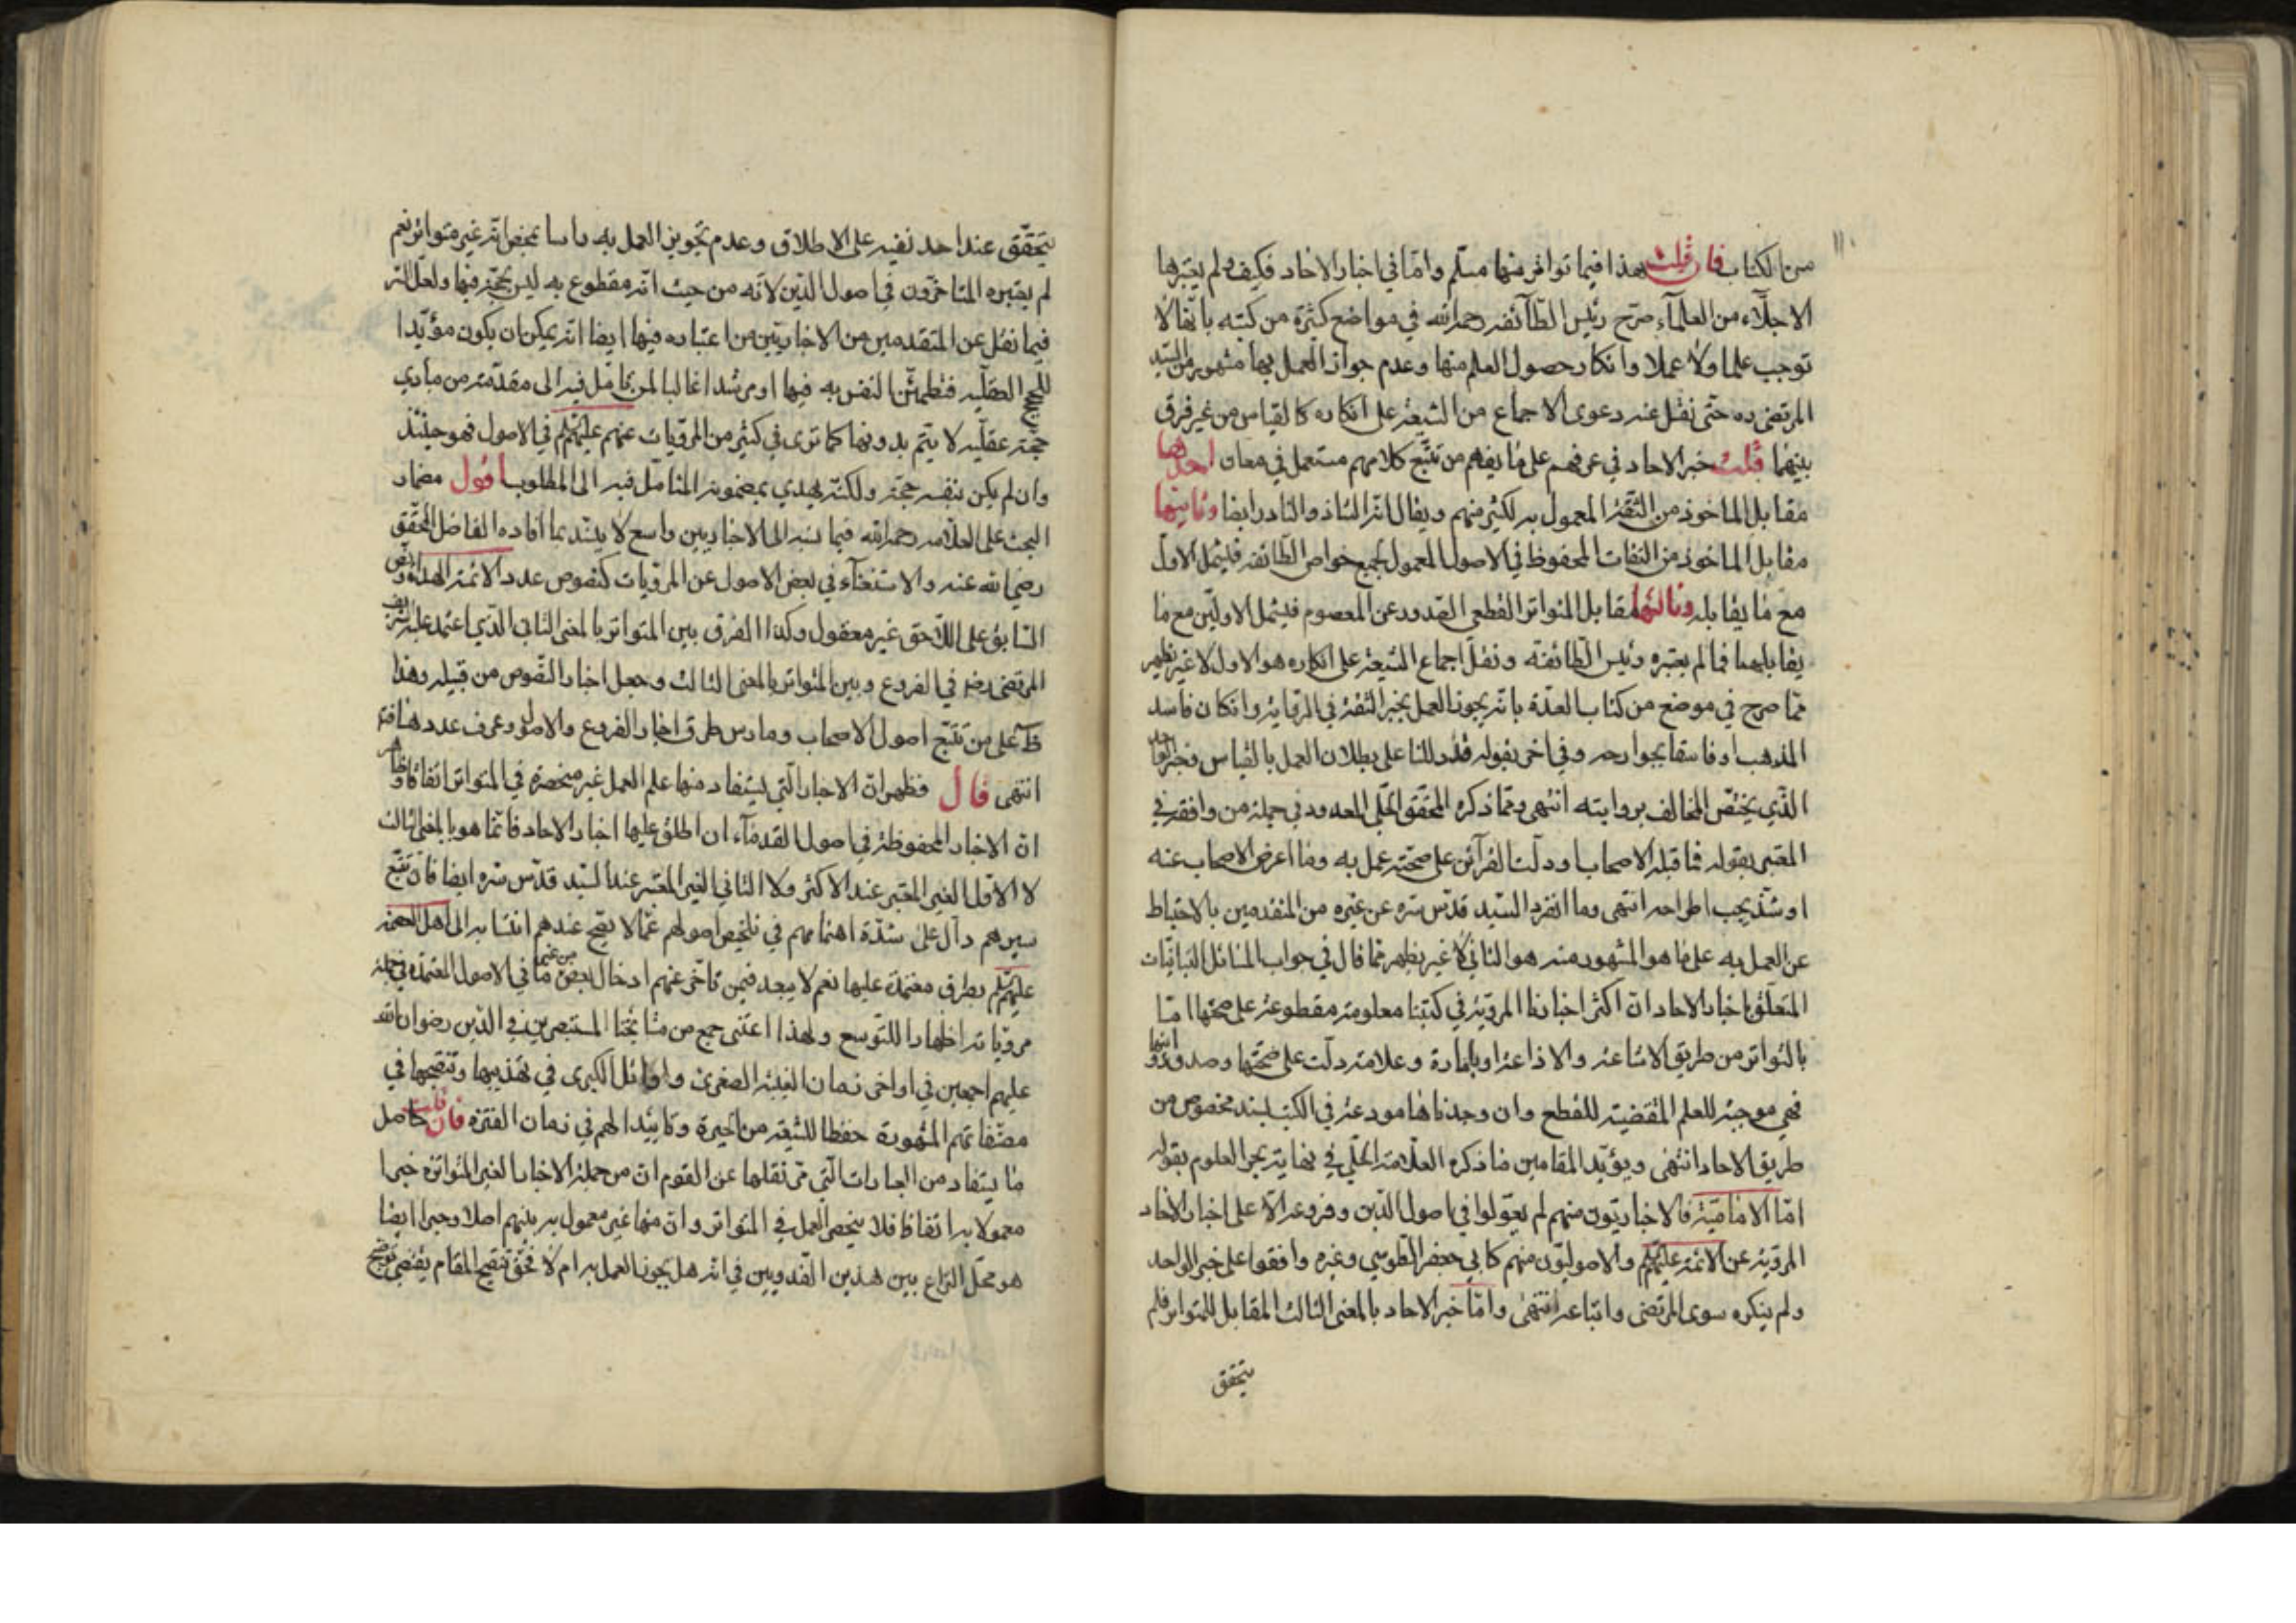 من الكتاب فان قلت هذا فيما تواتر منها مسلم واما في اخبار الاحاد فكيف ولم يعتبرها
الاجلاء من العلمآء صرح رئيس الطآئفه رحمه الله في مواضع كثيرة من كتبه بانها لا
توجب علما ولا عملا وانكار حصول العلم منها وعدم جواز العمل بها مشهور من السيد
المرتضى ره حتى نقل عنه دعوى الاجماع من الشيعة على انكاره كالقياس من غير فرق
بينهما قلت خبر الاحاد في عرفهم على ما يفهم من تتبع كلامهم مستعمل في معان احدها
مقابل الماخوذ من الثقة المعمول به لكثير منهم ويقال له الشاذ والنادر ايضا وثانيها
مقابل الماخوذ من الثقات المحفوظ في الاصول المعمول لجميع خواص الطائفه فيشمل الاول
مع ما يقابله وثالثها مقابل المتواتر القطعي الصدور عن المعصوم فيشمل الاولين مع ما
يقابلهما فما لم يعتبره رئيس الطائفة ونقل اجماع الشيعة على انكاره هو الاول لا غير يظهر
مما صرح في موضع من كتاب العدة بانه يجوز العمل بخبر الثقة في الرواية وان كان فاسد
المذهب او فاسقا بجوارحه وفي اخر بقوله قد دللنا على بطلان العمل بالقياس وخبر الواحد
الذي يختص المخالف بروايته انتهى ومما ذكره المحقق الحلي المعدود في جملة من وافقه في
المعتبر بقوله فما قبله الاصحاب او دلت القرآئن على صحته عمل به وما اعرض الاصحاب عنه
او شذ يجب اطراحه انتهى وما انفرد السيد قدس سره عن غيره من المتقدمين بالاحتياط
عن العمل به على ما هو المشهور منه هو الثاني لا غير يظهر مما قال في جواب المسائل التبانيات
المتعلق باخبار الاحاد ان اكثر اخبارنا المروية في كتبنا معلومة مقطوعة على صحتها اما
بالتواتر من طريق الاشاعة والاذاعة او بامارة وعلامة دلت على صحتها وصدق رواتها
فهي موجبة للعلم المقتضية للقطع وان وجدناها مودعة في الكتب بسند مخصوص من
طريق الاحاد انتهى ويؤيد المقامين ما ذكره العلامة الحلي في نهاية بحر العلوم بقوله
اما الامامية فالاخباريون منهم لم يعولوا في اصول الدين وفروعه الا على اخبار الاحاد
المروية عن الائمة عليهم السلم والاصوليون منهم كابي جعفر الطوسي وغيره وافقوا على خبر الواحد
ولم ينكره سوى المرتضى واتباعه انتهى واما خبر الاحاد بالمعنى الثالث المقابل للمتواتر فلم
يتحقق
يتحقق عند احد نفيه على الاطلاق وعدم تجويز العمل به راسا بمحض انه غير متواتر نعم
لم يعتبره المتاخرون في اصول الدين لانه من حيث انه مقطوع به ليس بحجة فيها ولعل السر
فيما نقل عن المتقدمين من الاخباريين من اعتباره فيها ايضا انه يمكن ان يكون مؤيدا
للحجج العقليه فتطمئن النفس به فيها او مرشدا غالبا لمن تامل فيه الى مقدمة من مبادي
حجة عقليه لا يتم بدونها كما ترى في كثير من المرويات عنهم عليهم السلم في الاصول فهو حينئذ
وان لم يكن بنفسه حجة ولكنه يهدي بمضمونه المتامل فيه الى المطلوب اقول مضمار
البحث على العلامه رحمه الله فيما نسبه الى الاخباريين واسع لا يستد بما افاده الفاضل المحقق
رضي الله عنه والاستغنآء في بعض الاصول عن المرويات كنصوص عدد الائمة الهداة ونص
السابق على اللاحق غير معقول وكذا الفرق بين المتواتر بالمعنى الثاني الذي اعتمد عليه الشريف
المرتضى رضه في الفروع وبين المتواتر بالمعنى الثالث وجعل اخبار النصوص من قبيله وهذا
ظ على من تتبع اصول الاصحاب ومارس طرق اخبار الفروع والاصول وعرف عددها
انتهى قال فظهر ان الاخبار التي يستفاد منها علم العمل غير منحصرة في المتواتر اتفاقا وظهر
ان الاخبار المحفوظة في اصول القدمآء ان اطلق عليها اخبار الاحاد فانما هو بالمعنى الثالث
لا الاول الغير المعتبر عند الاكثر ولا الثاني الغير المعتبر عند السيد قدس سره ايضا فان تتبع
سيرهم دال على شدة اهتمامهم في تلخيص اصولهم عما لا يصح عندهم انتسابه الى اهل العصمة
عليهم السلم بطرق معتمدة عليها نعم لا يبعد فيمن تاخر عنهم ادخال بعض ما في الاصول المعتمدة في جملة
مروياته اظهارا للتوسع ولهذا اعتنى جمع من مشايخنا المستبصرين في الدين رضوان الله
عليهم اجمعين في اواخر زمان الغيبة الصغرى واوائل الكبرى في تهذيبها وتنقيحها في
مصنفاتهم المشهورة حفظا للشيعة من الحيرة وتاييدا لهم في زمان الفترة فان قلت حاصل
ما يستفاد من العبارات التي مر نقلها عن القوم ان من جملة الاخبار الغير المتواترة خبرا
معمولا به اتفاقا فلا ينحصر العمل في المتواتر وان منها غير معمول به بينهم اصلا وخبرا ايضا
هو محل النزاع بين هذين القدوتين في انه هل يجوز العمل به ام لا فحق تنقيح المقام يقتضي توضيح